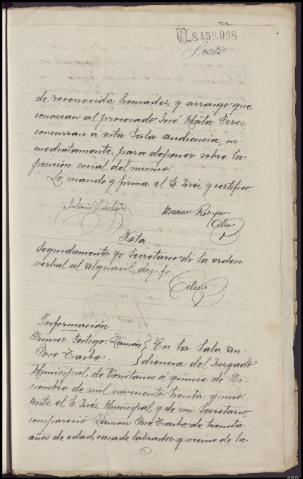 8.458.968
de reconocida honradez y arraigo que
conozcan al procesado José Mata Pérez,
concurran á esta Sala audiencia, in-
mediatamente, para deponer sobre la
posición social del mismo.
Lo mandó y firma el Sr. Juez, y certifico
Nota.
Seguidamente yo Secretario dí la orden
verbal al alguacil, doy fe.
Información
Primer testigo: Ramón } En la Sala au-
José Casbo. } diencia del Juzgado
Municipal, de a quince de Di-
ciembre de mil novecientos treinta y uno
ante el Sr. Juez Municipal, y de mi Secretario
compareció Ramón José Casbo, de treinta
años de edad, casado labrador y vecino de la